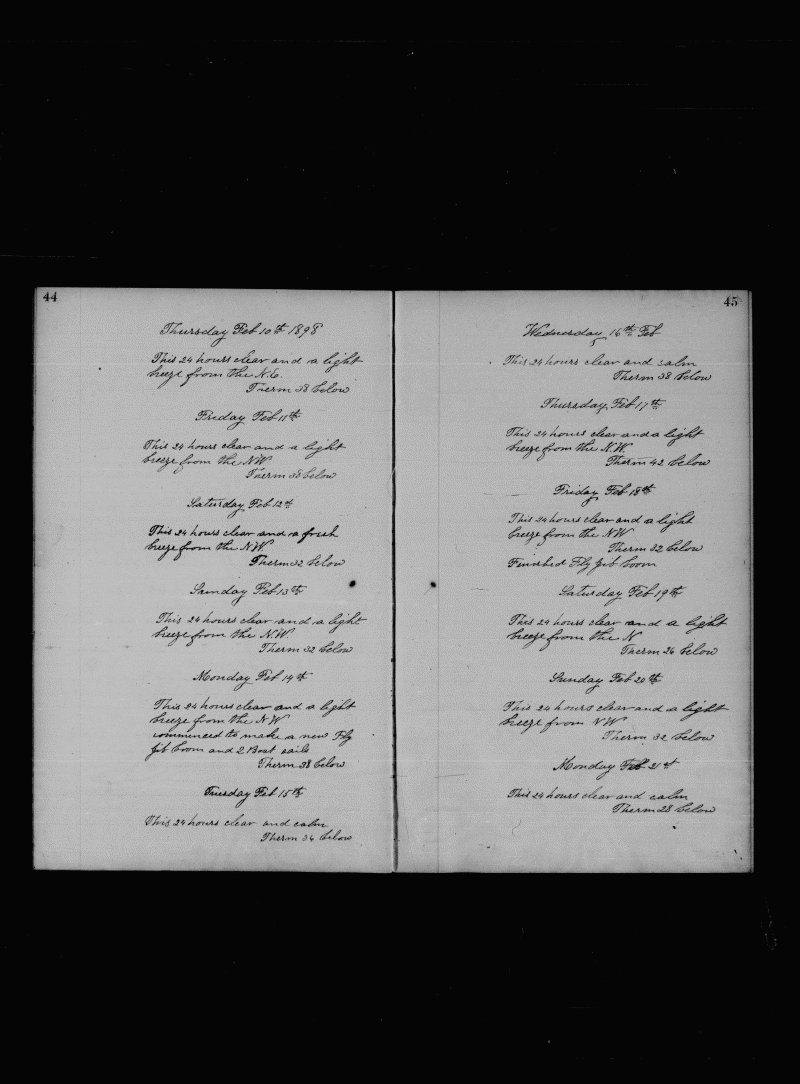 44
Thursday Feb 10th 1898
This 24 hours clear and a light
breeze from the N.E.
Therm 38 below
Friday Feb 11th
This 24 hours clear and a light
breeze from the NW
Therm 38 below
Saturday Feb 12th
This 24 hours clear and a fresh
breeze from the NW.
Therm 32 below
Sunday Feb 13th
This 24 hours clear and a light
breeze from the N.W.
Therm 32 below
Monday Feb 14th
This 24 hours clear and a light
breeze from the N W
commenced to make a new Fly
jib boom and 2 Boat sails
Therm 38 below
Tuesday Feb 15th
This 24 hours clear and calm
Therm 34 below
45
Wednesday 16th Feb
This 24 hours clear and calm
Therm 38 below
Thursday, Feb 17th
This 24 hours clear and a light
breeze from the N.W.
Therm 42 below
Friday Feb 18th
This 24 hours clear and a light
breeze from the NW
Therm 32 below
Finished Fly jib boom
Saturday Feb 19th
This 24 hours clear and a light
breeze from the N
Therm 26 below
Sunday Feb 20th
This 24 hours clear and a light
breeze from NW
Therm 32 below
Monday Feb 21st
This 24 hours clear and calm
Therm 28 below